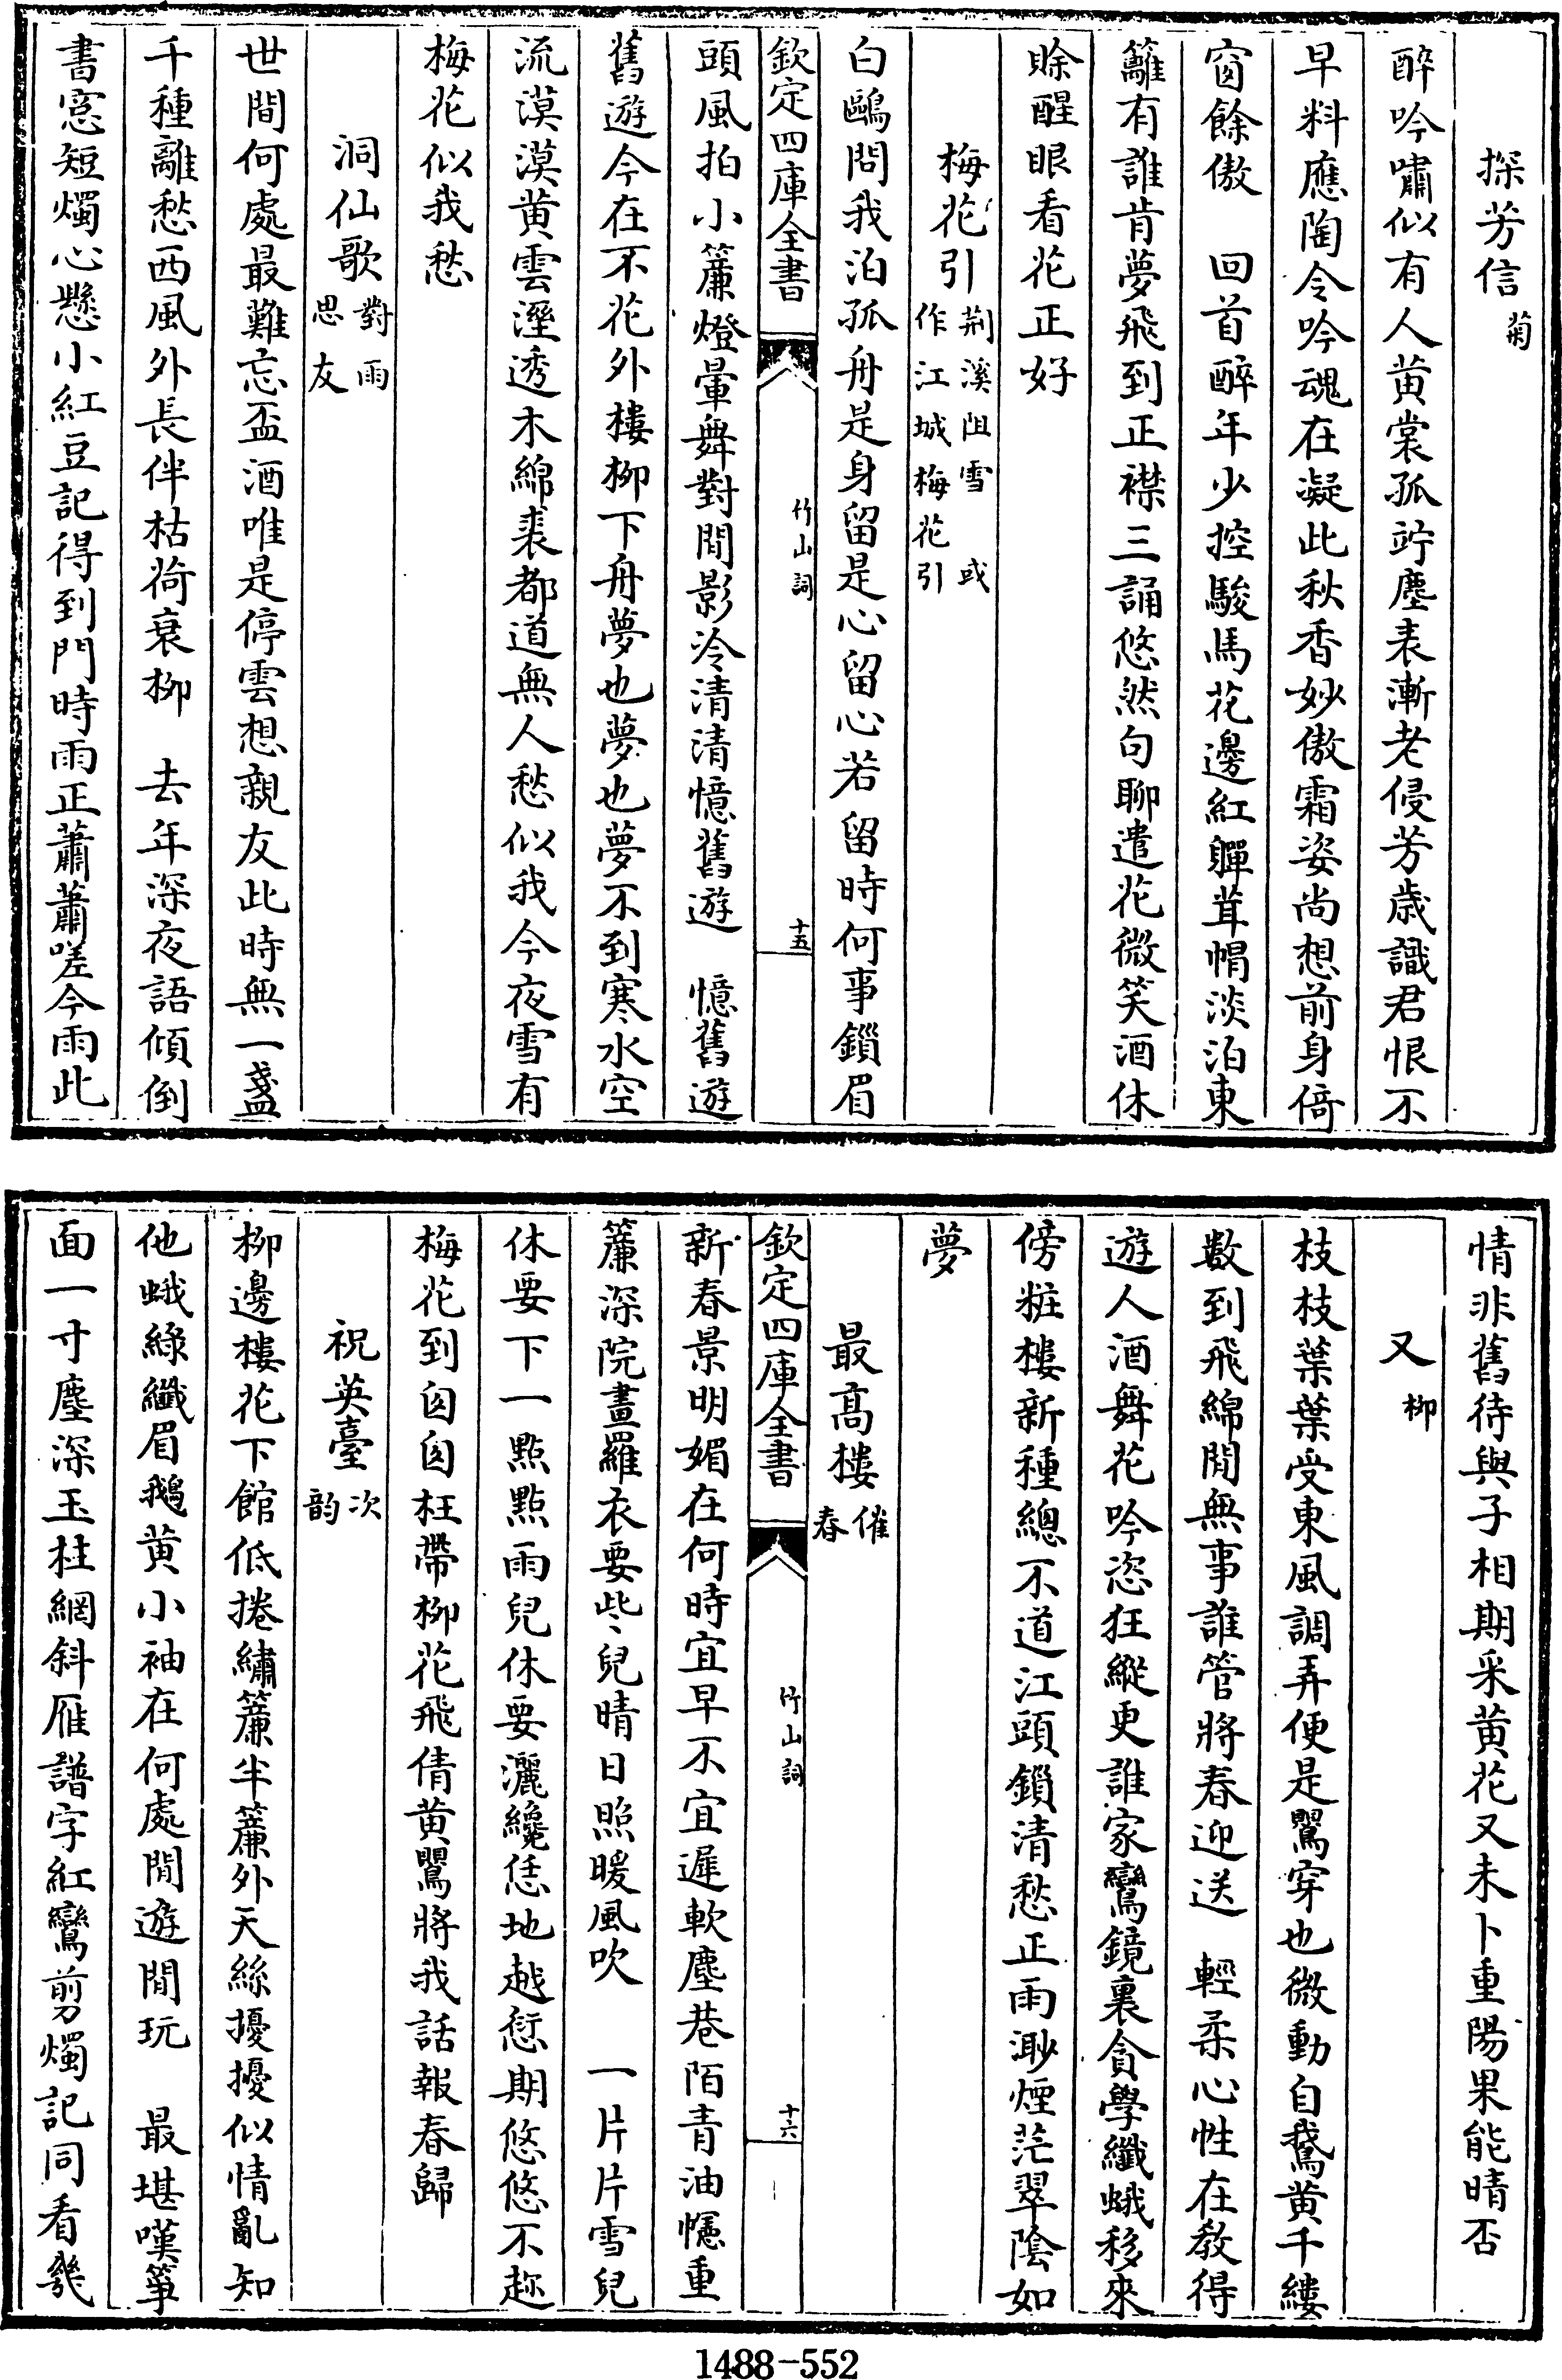 探芳信菊
醉吟嘯似有人黄裳孤竚塵表漸老侵芳歳識君恨不
早料應陶令吟魂在凝此秋香妙傲霜姿尚想前身倚
窗餘傲　回首醉年少控駿馬花邊紅鞸茸帽淡泊東
籬有誰肯夢飛到正襟三誦悠然句聊遣花微笑酒休
賖醒眼看花正好
梅花引荆溪阻雪或作江城梅花引
白鷗問我泊孤舟是身留是心留心若留時何事鎻眉
欽定四庫全書　竹山詞　十五
頭風拍小簾燈暈舞對閒影冷清清憶舊遊　憶舊遊
舊遊今在不花外樓柳下舟夢也夢也夢不到寒水空
流漠漠黄雲溼透木綿裘都道無人愁似我今夜雪有
梅花似我愁
洞仙歌對雨思友
世間何處最難忘盃酒唯是停雲想親友此時無一盞
千種離愁西風外長伴枯荷衰柳　去年深夜語傾倒
書窓短燭心懸小紅豆記得到門時雨正蕭蕭嗟今雨此
情非舊待與子相期采黄花又未卜重陽果能晴否
又柳
枝枝葉葉受東風調弄便是鸎穿也微動自鵞黄千縷
数到飛綿閒無事誰管將春迎送　輕柔心性在教得
遊人酒舞花吟恣狂縱更誰家鸞鏡裏貪學纖蛾移來
傍粧樓新種總不道江頭鎻清愁正雨渺煙茫翠陰如
夢
最髙樓催春
欽定四庫全書　竹山詞　十六
新春景明媚在何時宜早不宜遲軟塵巷陌青油幰重
簾深院畫羅衣要些兒晴日照暖風吹　一片片雪兒
休要下一點點雨兒休要灑纔恁地越愆期悠悠不趂
梅花到囱囱枉帶柳花飛倩黄鸎將我話報春歸
祝英臺次韵
柳邊樓花下館低捲繡簾半簾外天絲擾擾似情亂知
他蛾綠纖眉鵝黄小袖在何處閒遊閒玩　最堪嘆箏
面一寸塵深玉柱網斜雁譜字紅鸞剪燭記同看幾
1488-552